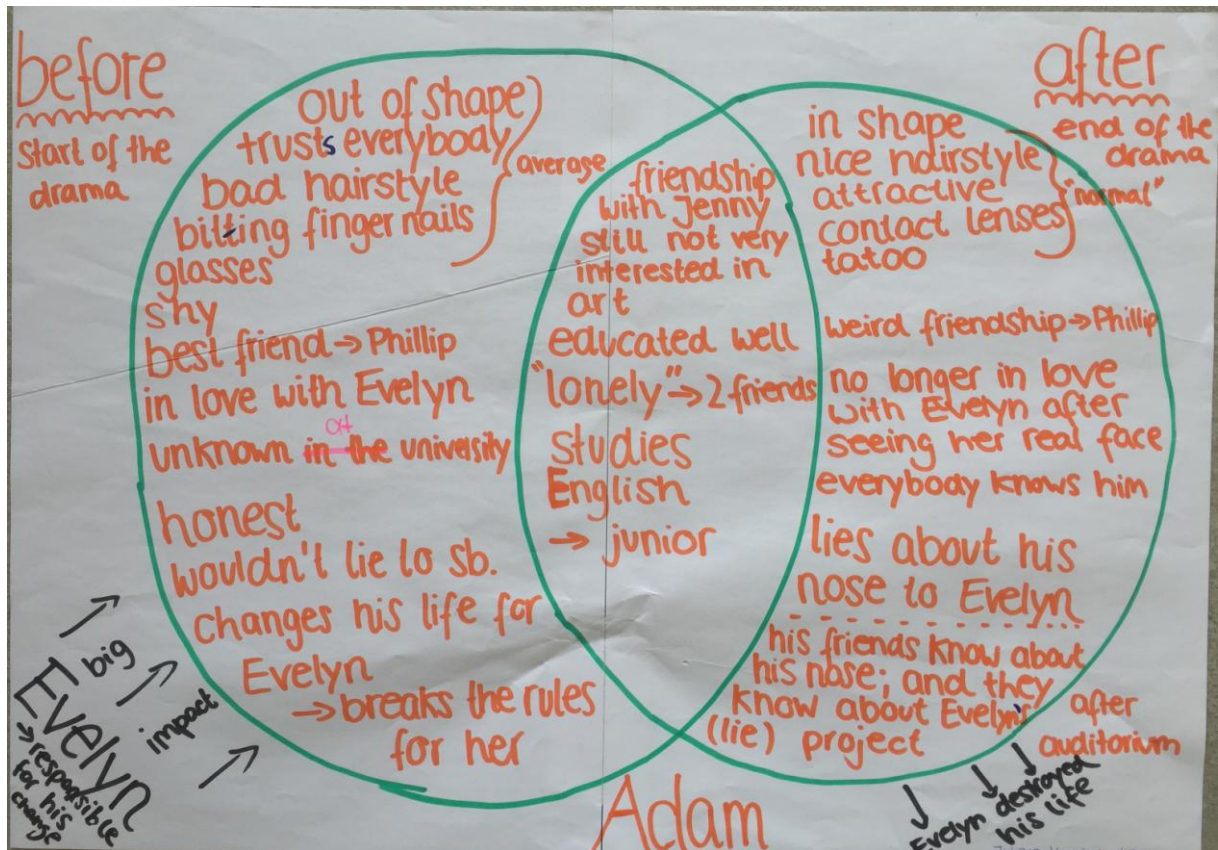 before
start of the
drama
out of shape
trusts everybody
bad hairstyle
bitting finger nails
average
glasses
shy
best friend → Phillip
in love with Evelyn
unknown in the university
at
honest
wouldn't lie to sb.
changes his life for
Evelyn
→ breaks the rules
for her
friendship
with Jenny
still not very
interested in
art
educated well
"lonely" → 2 friends
studies
English
→ junior
after
end of the
drama
in shape
nice hairstyle
attractive
contact lenses
"normal"
tatoo
weird friendship → Phillip
no longer in love
with Evelyn after
seeing her real face
everybody knows him
lies about his
nose to Evelyn
his friends know about
his nose; and they
know about Evelyn's
(lie) project
after
auditorium
Evelyn
→ responsible
for his
change
big
impact
Adam
Evelyn destroyed
his life